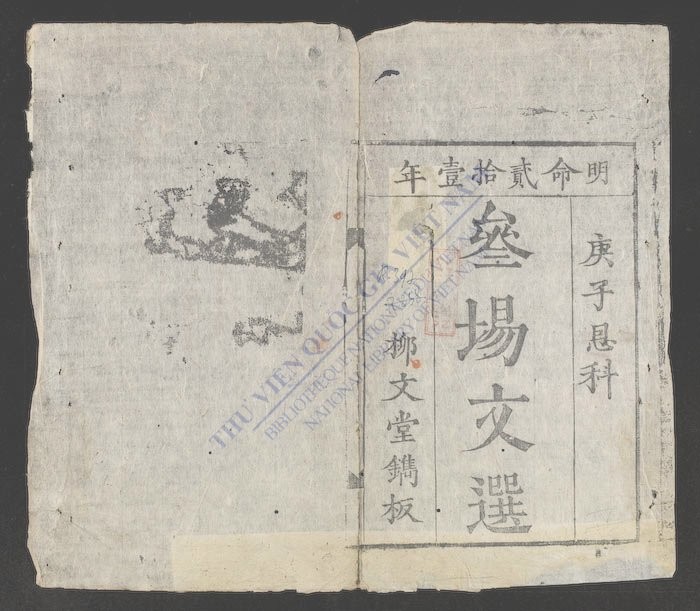 明命貳拾壹年
庚子恩科
叄場文選
柳文堂鐫板
THƯ VIỆN QUỐC GIA VIỆT NAM
BIBLIOTHEQUE NATIONALE DU VIETNAM
NATIONAL LIBRARY OF VIETNAM